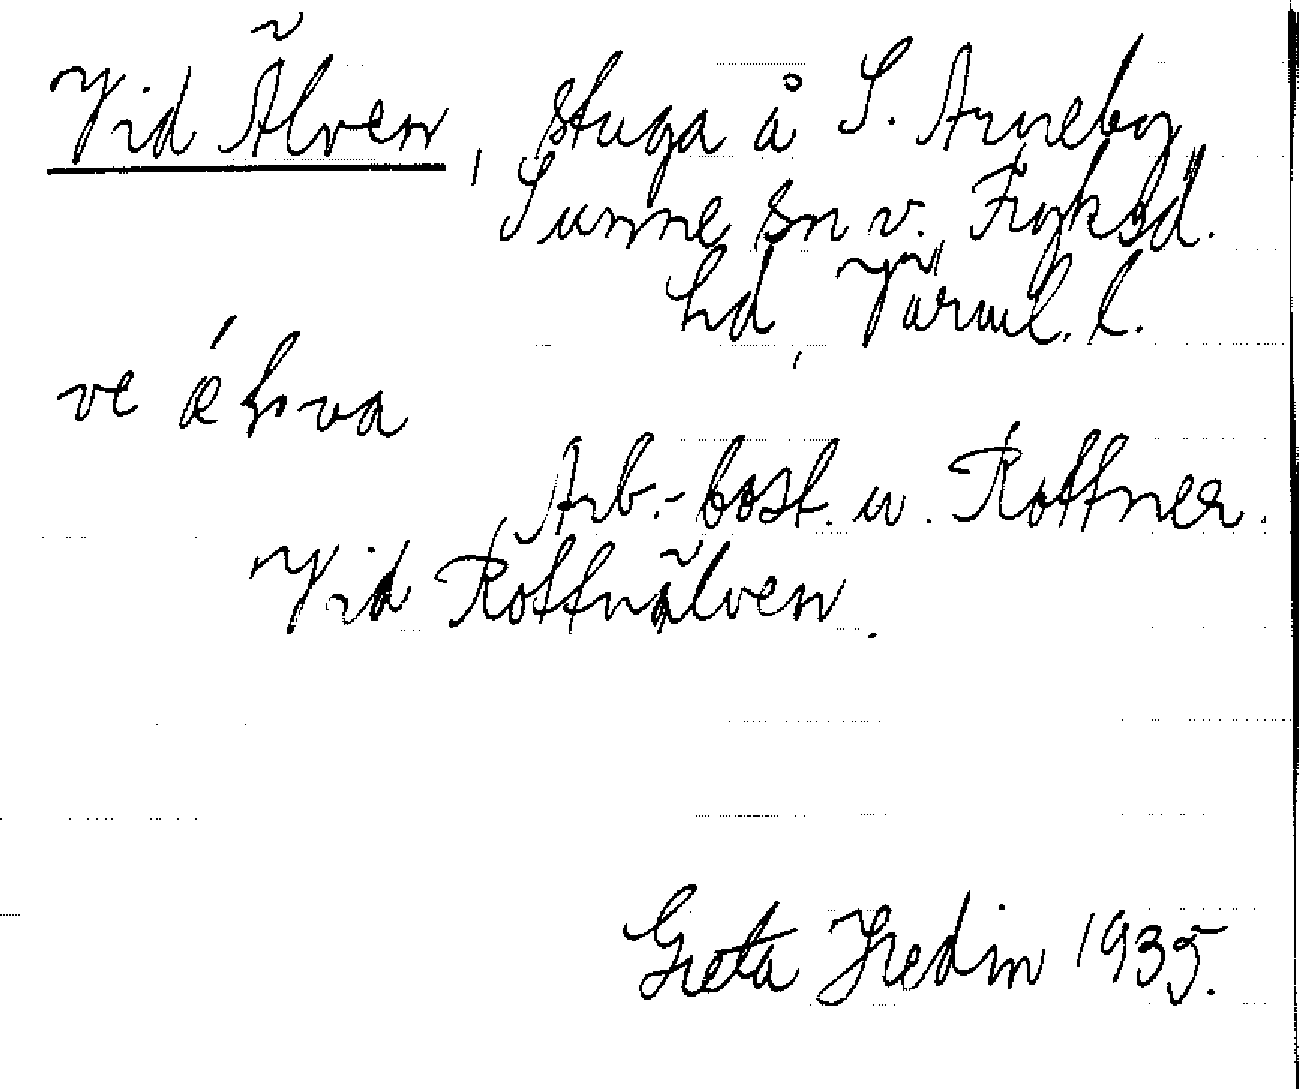 Vid Älven, stuga å S. Arneby,
Sunne sn v. Fryksd.
hd, Värml. l.
ve
Arb.-bost. u. Rottner.
Vid Rottnälven.
Greta Hedin 1935.